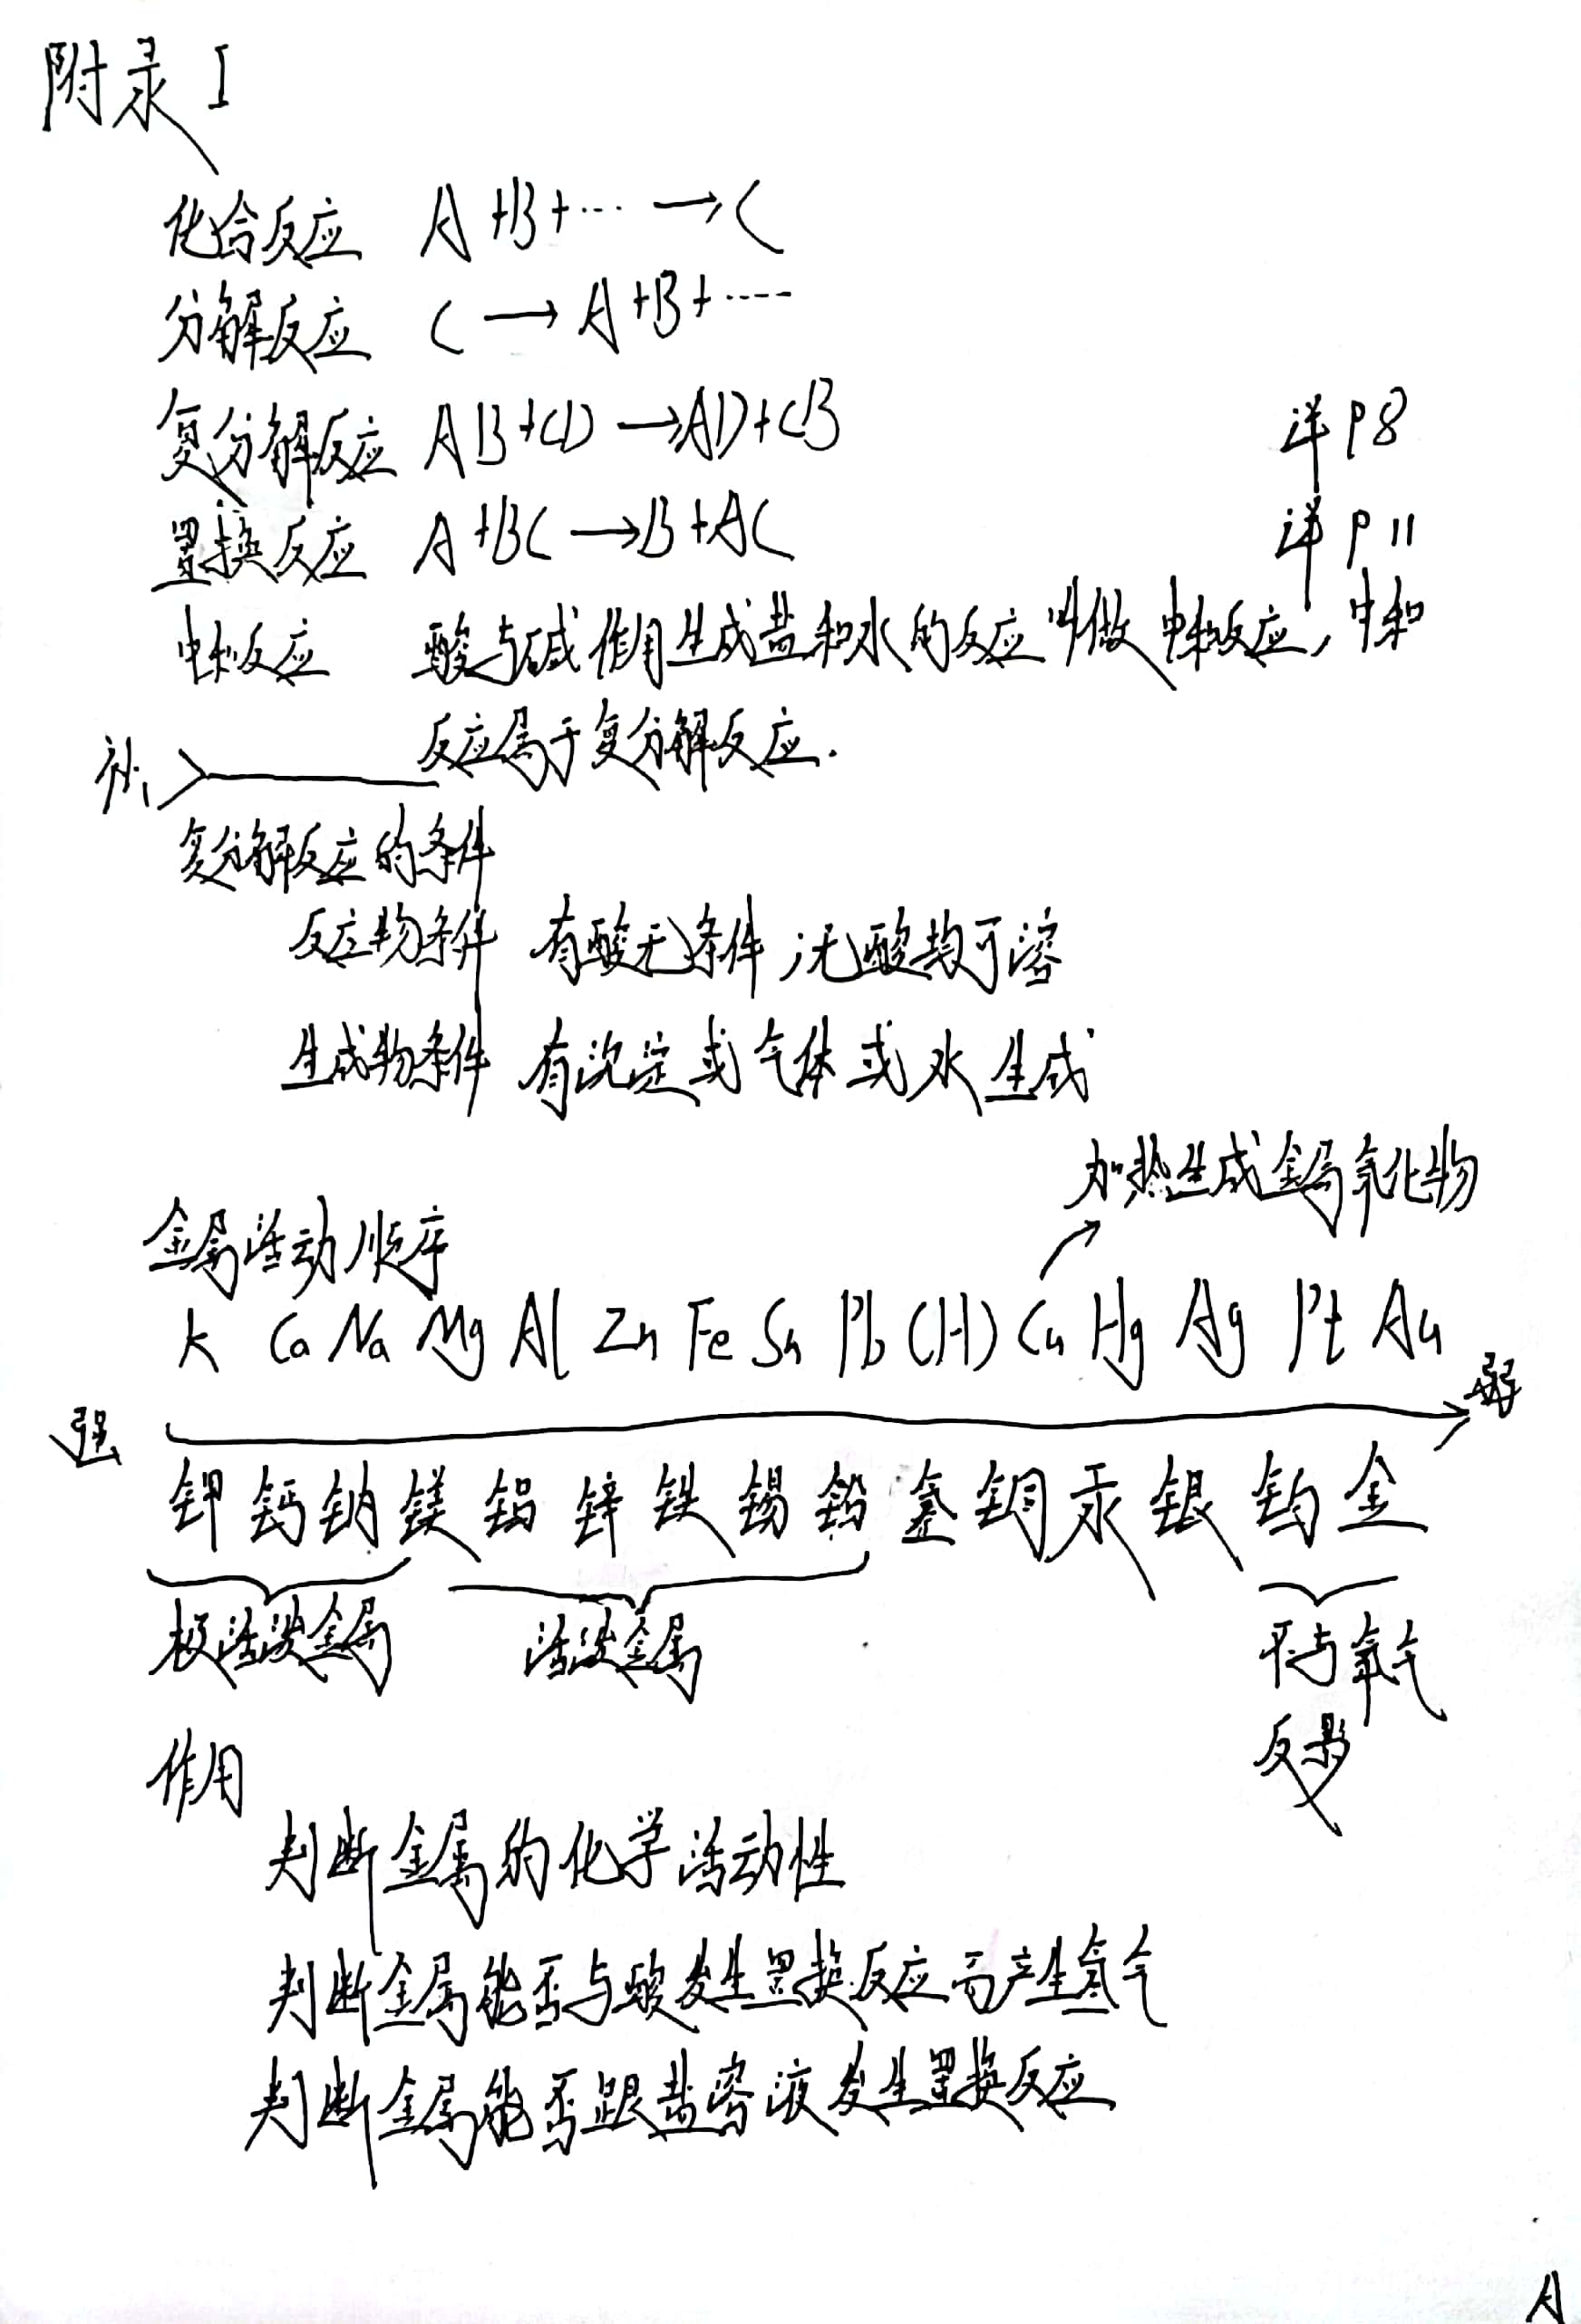 附录 I
化合反应 A+B+… →C
分解反应 C → A+B+……
复分解反应 AB+CD →AD+CB 详 P8
置换反应 A+BC →B+AC 详 P11
中和反应 酸与碱作用生成盐和水的反应叫做中和反应,中和
反应属于复分解反应.
补1
复分解反应的条件
反应物条件 有酸无条件;无酸均可溶
生成物条件 有沉淀或气体或水生成
加热生成金属氧化物
金属活动顺序
K Ca Na Mg Al Zn Fe Sn Pb (H) Cu Hg Ag Pt Au
强 弱
钾 钙 钠 镁 铝 锌 铁 锡 铅 氢 铜 汞 银 铂 金
极活泼金属 活泼金属 不与氧气
反
作用
判断金属的化学活动性
判断金属能否与酸发生置换反应而产生氢气
判断金属能否跟盐溶液发生置换反应
A